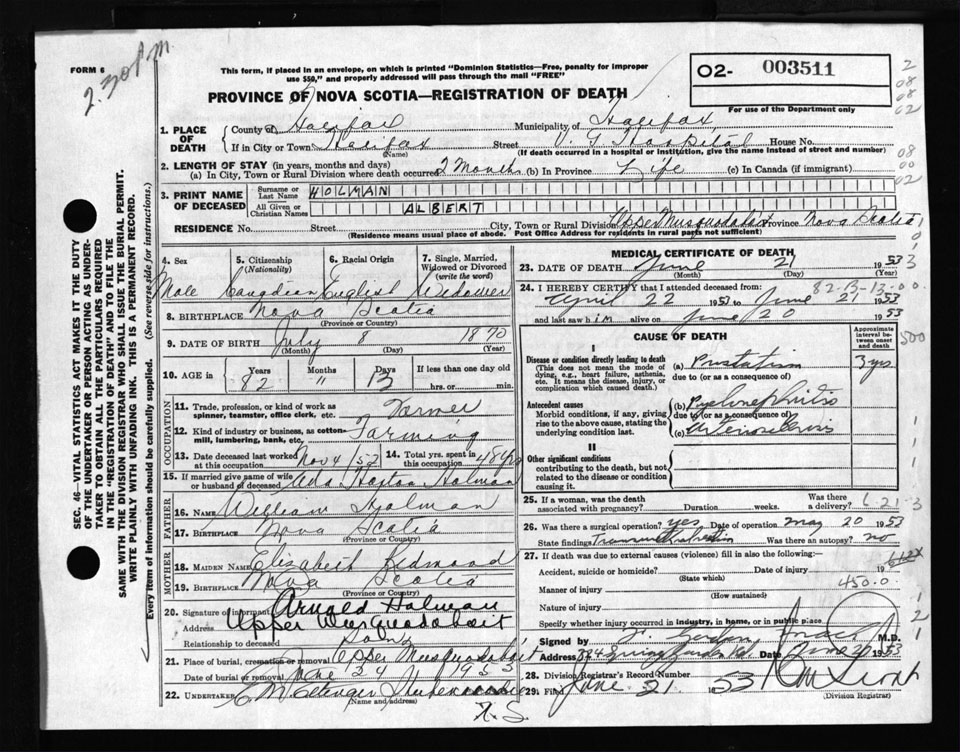 FORM 6
2.30 PM
This form, if placed in an envelope, on which is printed "Dominion Statistics—Free, penalty for improper
use $50," and properly addressed will pass through the mail "FREE"
02- 003511
For use of the Department only
PROVINCE OF NOVA SCOTIA—REGISTRATION OF DEATH
2
08
08
02
08
00
02
1. PLACE OF DEATH
County of Halifax Municipality of Halifax
If in City or Town Halifax Street V. G. Hospital House No.
(Name) (If death occurred in a hospital or institution, give the name instead of street and number)
2. LENGTH OF STAY (in years, months and days)
(a) In City, Town or Rural Division where death occurred 2 Months (b) In Province Life (c) In Canada (if immigrant)
3. PRINT NAME OF DECEASED
Surname or Last Name HOLMAN
All Given or Christian Names ALBERT
RESIDENCE No. Street City, Town or Rural Division Upper Musquodoboit Province Nova Scotia
(Residence means usual place of abode. Post Office Address for residents in rural parts not sufficient)
SEC. 46—VITAL STATISTICS ACT MAKES IT THE DUTY
OF THE UNDERTAKER OR PERSON ACTING AS UNDER-
TAKER TO OBTAIN ALL THE PARTICULARS REQUIRED
IN THE "REGISTRATION OF DEATH" AND TO FILE THE
SAME WITH THE DIVISION REGISTRAR WHO SHALL ISSUE THE BURIAL PERMIT.
WRITE PLAINLY WITH UNFADING INK. THIS IS A PERMANENT RECORD.
Every item of information should be carefully supplied. (See reverse side for instructions.)
4. Sex
Male
5. Citizenship
(Nationality)
Canadian
6. Racial Origin
English
7. Single, Married,
Widowed or Divorced
(write the word)
Widower
8. BIRTHPLACE Nova Scotia
(Province or Country)
9. DATE OF BIRTH July 8 1870
(Month) (Day) (Year)
10. AGE in Years Months Days If less than one day old
82 " 13 hrs. or min.
OCCUPATION
11. Trade, profession, or kind of work as
spinner, teamster, office clerk, etc. Farmer
12. Kind of industry or business, as cotton-
mill, lumbering, bank, etc. Farming
13. Date deceased last worked
at this occupation Nov 4/52
14. Total yrs. spent in
this occupation 48 yrs
15. If married give name of wife
or husband of deceased Ada Holman
FATHER
16. Name William Holman
17. BIRTHPLACE Nova Scotia
(Province or Country)
MOTHER
18. MAIDEN NAME Elizabeth Redmond
19. BIRTHPLACE Nova Scotia
(Province or Country)
20. Signature of informant Arnold Holman
Address Upper Musquodoboit
Relationship to deceased Son
21. Place of burial, cremation or removal Upper Musquodoboit
Date of burial or removal June 24 1953
22. UNDERTAKER
(Name and address)
N.S.
MEDICAL CERTIFICATE OF DEATH
23. DATE OF DEATH June 21 1953
(Month) (Day)
24. I HEREBY CERTIFY that I attended deceased from:
82-13-13-00
April 22 1953 to June 21 1953
and last saw him alive on June 20 1953
CAUSE OF DEATH
Approximate
interval between
onset and death
500
I
Disease or condition directly leading to death
(This does not mean the mode of
dying, e.g., heart failure, asthenia,
etc. It means the disease, injury, or
complication which caused death.)
(a) Prostatism 3 yrs.
due to (or as a consequence of)
Antecedent causes
Morbid conditions, if any, giving
rise to the above cause, stating the
underlying condition last.
(b) Pyelonephritis
due to (or as a consequence of)
(c) Arteriosclerosis
II
Other significant conditions
contributing to the death, but not
related to the disease or condition
causing it.
25. If a woman, was the death
associated with pregnancy? Duration weeks. Was there
a delivery?
26. Was there surgical operation? yes Date of operation May 20 1953
State findings Was there an autopsy? no
27. If death was due to external causes (violence) fill in also the following:—
Accident, suicide or homicide? Date of injury 19
(State which)
612X
450.0
Manner of injury
(How sustained)
Nature of injury
Specify whether injury occurred in industry, in home, or in public place
Signed by M.D.
Address 324 Spring Garden Rd. Date June 21 1953
28. Division Registrar's Record Number
29. Filed June 21 1953
(Division Registrar)